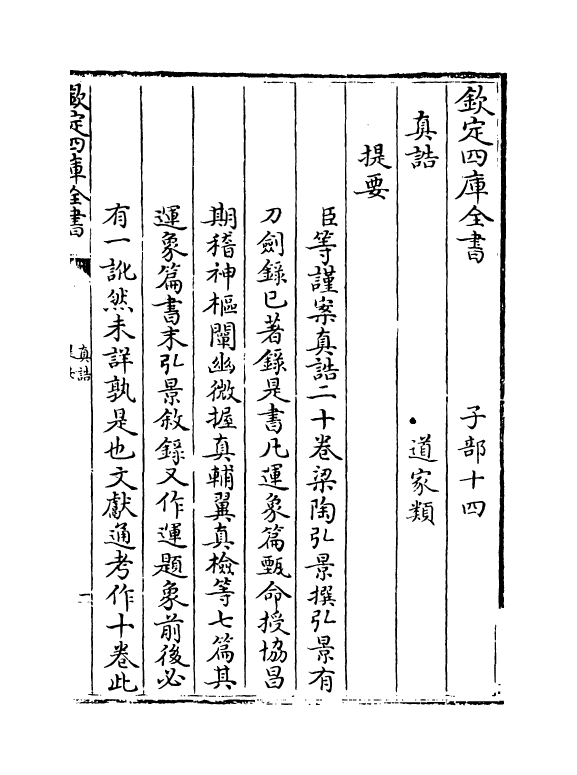 欽定四庫全書　　　　子部十四
真誥　　　　　　　　道家類
提要
臣等謹案真誥二十卷梁陶弘景撰弘景有
刀劍錄已著錄是書凡運象篇甄命授協昌
期稽神樞闡幽微握真輔翼真檢等七篇其
運象篇書末弘景敘錄又作運題象前後必
有一訛然未詳孰是也文獻通考作十卷此
欽定四庫全書
真誥